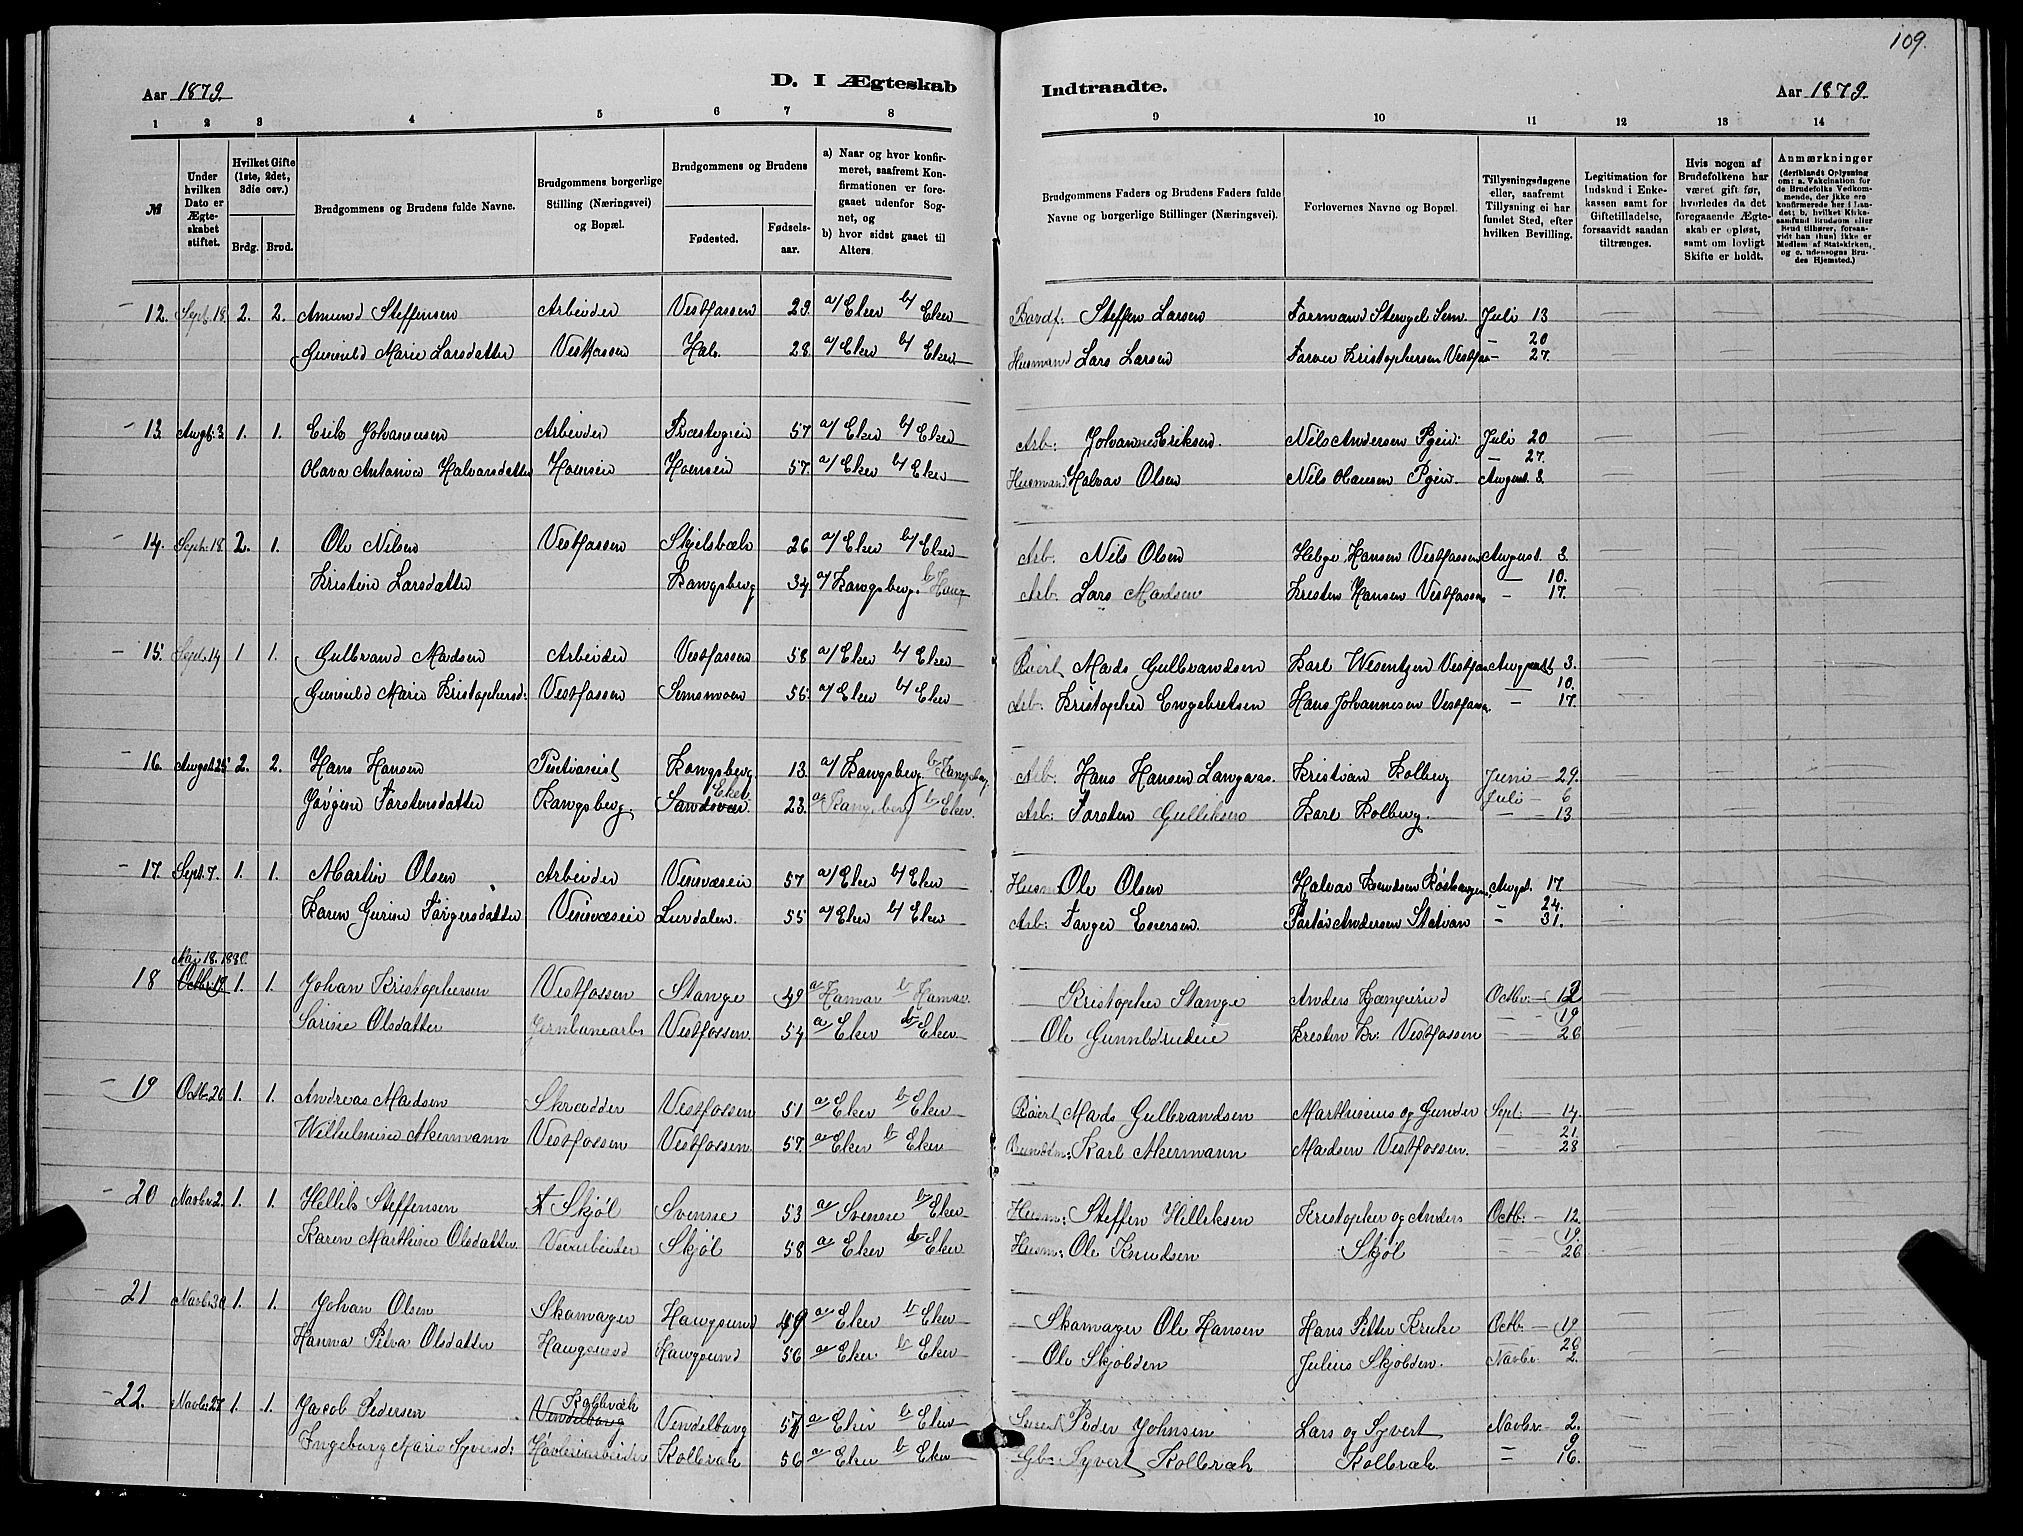 109.
Aar 1879.
D. I Ægteskab
Indtraadte.
Aar 1879.
1 2 3 4 5 6 7 8
9 10 11 12 13 14
№
Under hvilken Dato er Ægteskabet stiftet.
Hvilket Gifte (1ste, 2det, 3die osv.)
Brdg. Brud.
Brudgommens og Brudens fulde Navne.
Brudgommens borgerlige Stilling (Næringsvei) og Bopæl.
Brudgommens og Brudens
Fødested.
Fødselsaar.
a) Naar og hvor konfirmeret, saafremt Konfirmationen er foregaaet udenfor Sognet, og
b) hvor sidst gaaet til Alters.
Brudgommens Faders og Brudens Faders fulde Navne og borgerlige Stillinger (Næringsvei).
Forlovernes Navne og Bopæl.
Tillysningsdagene eller, saafremt Tillysning ei har fundet Sted, efter hvilken Bevilling.
Legitimation for Indskud i Enkekassen samt for Giftetilladelse, forsaavidt saadan tiltrænges.
Hvis nogen af Brudefolkene har været gift før, hvorledes da det foregaaende Ægteskab er opløst, samt om lovligt Skifte er holdt.
Anmærkninger (deriblandt Oplysning om: a. Vakcination for de Brudefolks Vedkommende, der ikke ere konfirmerede her i Landet; b. hvilket Kirkesamfund Brudgom eller Brud tilhører, forsaavidt han (hun) ikke er Medlem af Statskirken, og c. udensogns Brudes Hjemsted.)
12. Sept. 18. 2. 2. Amund Steffensen Arbeider Vestfossen 29. a/ Eker b/ Eker Steffen Larsen Formand Stengel Sem. Juli 13
20
Gunild Marie Larsdatter Vestfossen Hals. 28 a/ Eker b/ Eker Husmand Lars Larsen Farver Kristophersen Vestfos - 27.
13. Augst. 3. 1. 1. Erik Johannesen Arbeider Præstegrein 57 a/ Eker b/ Eker Arb: Johannes Eriksen. Nils Andersen Pgein. Juli 20
- 27.
Olava Antonia Halvorsdatter Hoensein Hoensein 57. a/ Eker b/ Eker Husmand Halvor Olsen Nils Hansen Pgein. August 3.
14. Sept. 18. 2. 1. Ole Nilsen Vestfossen Skjelsbæk 26 a/ Eker b/ Eker Arb. Nils Olsen Helge Hansen Vestfossen August 3.
- 10.
Kristine Larsdatter Kongsberg 34 a/ Kongsberg. b/ Haug Arb. Lars Madsen Kristen Hansen Vestfossen - 17.
15. Sept. 14 1 1. Gulbrand Madsen Arbeider Vestfossen 58 a/ Eker b/ Eker Mads Gulbrandsen Karl Wesentzen Vestfos August 3.
10.
Gunild Marie Kristophersd: Vestfossen Semsmoen 55 a/ Eker b/ Eker Arb: Kristopher Engebretsen Hans Johannesen Vestfossen. - 17.
16. August 25 2. 2. Hans Hansen Kongsberg 13. a/ Kongsberg b/ Kongsberg Arb: Hans Hansen Langaas. Kristian Kolberg Juni - 29.
Eker.
Juli - 6
Jørgine Torstensdatter Kongsberg. Sandsvær 23. a/ Kongsberg b/ Eker. Arb: Torsten Gulliksen Karl Kolberg. - 13
17. Sept. 7. 1. 1. Martin Olsen Arbeider 57 a/ Eker b/ Eker Husm: Ole Olsen Halvor Knudsen Augst. 17.
24.
Karen Gurine Torgersdatter Lurdalen. 55 a/ Eker b/ Eker Arb: Torger Eversen. Andersen - 31.
Mai 18. 1880.
18 Octbr. 19 1. 1. Johan Kristophersen Vestfossen Stange 49 a/ Hamar b/ Hamar. Kristopher Stange Anders Octbr. - 12
19
Sarine Olsdatter Jernbanearb. Vestfossen. 54. a/ Eker b/ Eker. Ole Kresten Kr: Vestfossen - 26
19 Octb. 26 1. 1. Andreas Madsen Skrædder Vestfossen 51 a/ Eker b/ Eker Mads Gulbrandsen Marthinius og Gunder Sept: - 14.
21.
Wilhelmine Akermann Vestfossen Vestfossen 57. a/ Eker b/ Eker Karl Akermann Madsen Vestfossen. 28
20 Novbr 2. 1. 1. Hellik Steffensen Skjøl Svenne 53 a/ Svenne b/ Eker Husm: Steffen Hilliksen Kristopher og Anders Octb: - 12.
19.
Karen Marthine Olsdatter 58 a/ Eker b/ Eker Skjøl Husm: Ole Knudsen Skjøl - 26
21 Novbr 30 1. 1. Johan Olsen Skomager Hougsund 49 a/ Eker b/ Eker Skomager Ole Hansen Hans Petter Kruke Octb: - 19
26
Hanna Petra Olsdatter Hougsund Hougsund 56 a/ Eker. b/ Eker Ole Skjølden Julius Skjølden. Novbr - 2.
Kolbræk
22. Novbr 27 1. 1. Jacob Pedersen Vendelborg Vendelborg 57 a/ Eker b/ Eker Peder Johnsen Lars og Syvert Novbr - 2.
9
Ingeborg Marie Syversd: Høvleriarbeider Kolbræk 56 a/ Eker b/ Eker Gb: Syvert Kolbræk Kolbræk - 16.